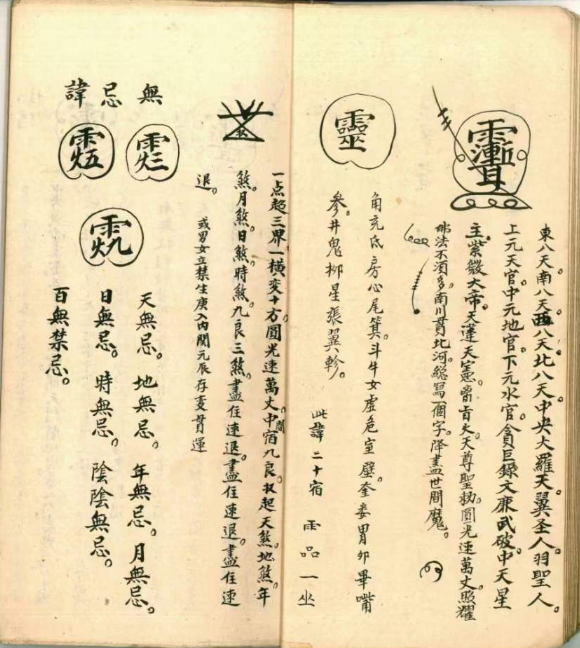 東八天南八天西八天北八天中央大羅天翼圣人羽聖人
上元天官中元地官下元水官貪巨錄文廉武破中天星
主紫薇大帝天蓬天
天尊聖
圓光速萬丈照耀
邪法不須多南川貫北河總寫一個字降盡世間魔
靈
角亢氐房心尾箕斗牛女虛危室壁奎婁胃卯畢嘴
參井鬼柳星張翼軫
此諱二十宿 雨品一坐
一点超三界一橫变十方圓光速萬丈中宿九良收起天煞地煞年
煞月煞日煞時煞九良三煞盡住速退盡住速退盡住速
退
或男女立禁生庚入內
元辰存变貫運
無忌諱
天無忌地無忌年無忌月無忌
日無忌時無忌陰陰無忌
百無禁忌